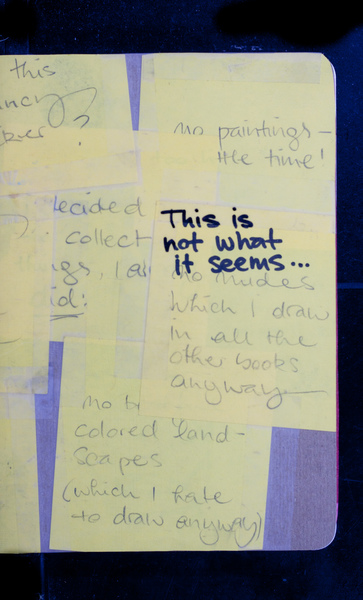 this
?
no paintings -
the time!
decided
collect
This is
not what
it seems...
no nudes
which I draw
in all the
other books
anyway
no
colored land-
scapes
(which I hate
to draw anyway)